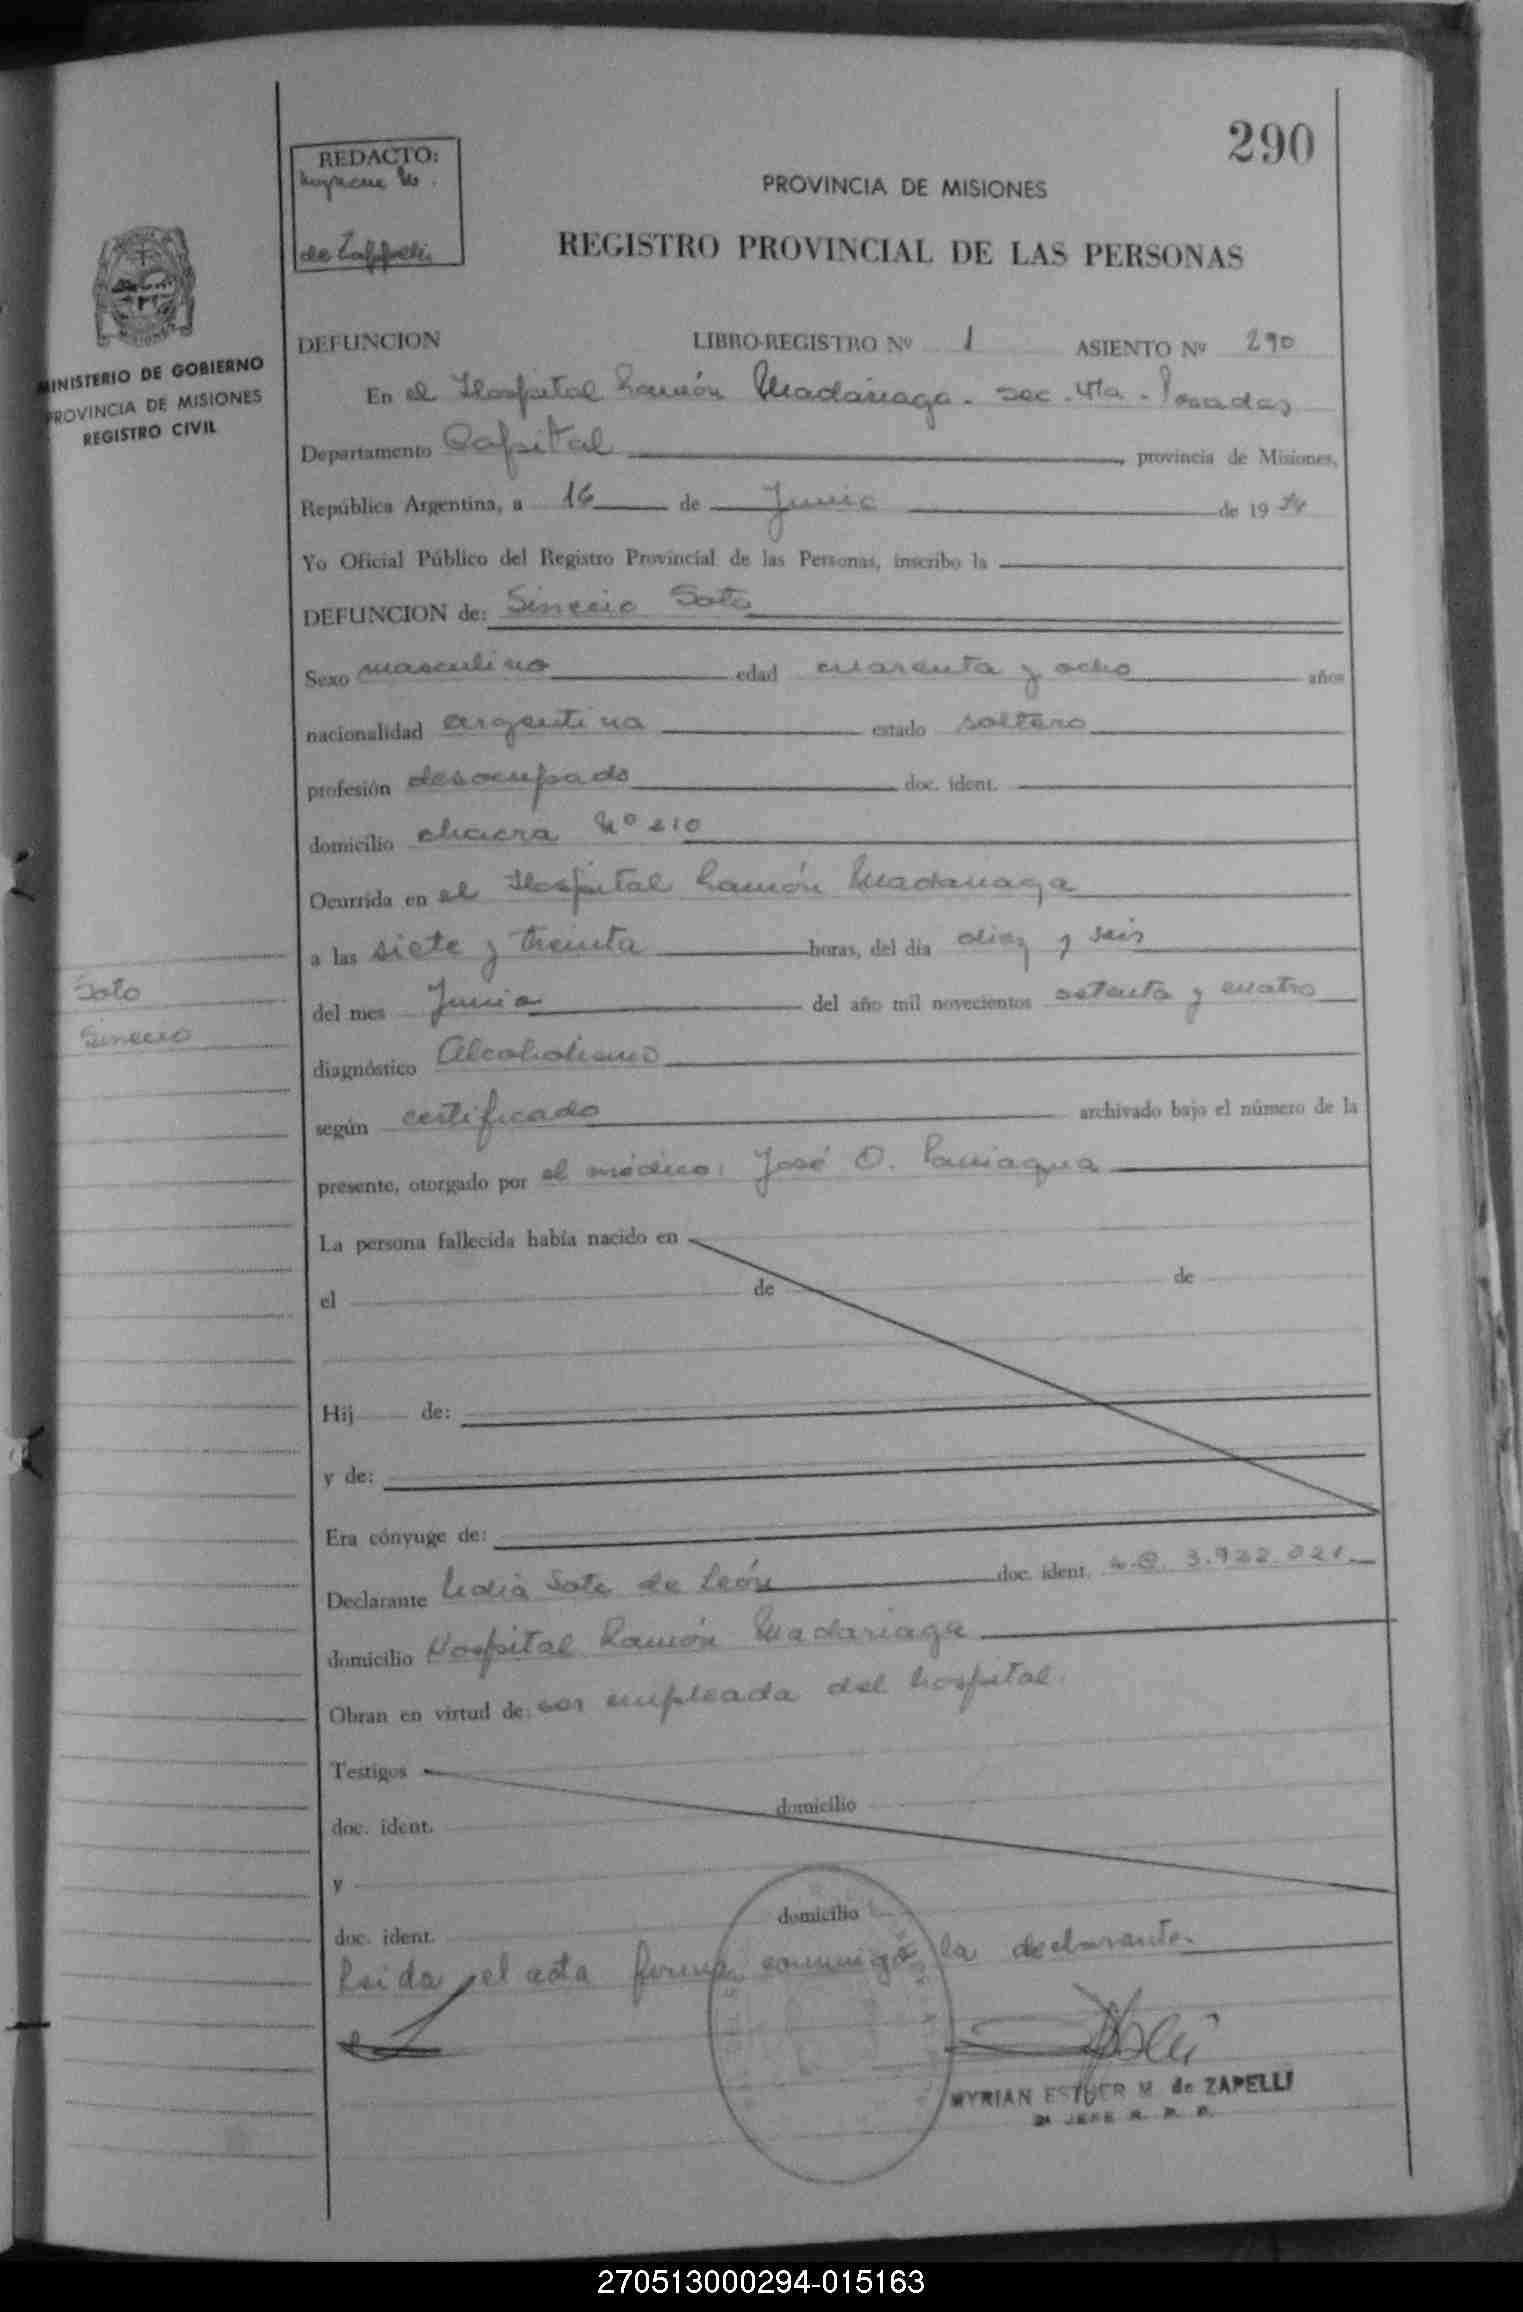 290
REDACTO:
de Zappelli
PROVINCIA DE MISIONES
REGISTRO PROVINCIAL DE LAS PERSONAS
MINISTERIO DE GOBIERNO
PROVINCIA DE MISIONES
REGISTRO CIVIL
DEFUNCION LIBRO-REGISTRO Nº 1 ASIENTO Nº 290
En el Hospital Ramón Madariaga - sec. 4ta - Posadas
Departamento Capital, provincia de Misiones,
República Argentina, a 16 de Junio de 1974
Yo Oficial Público del Registro Provincial de las Personas, inscribo la
DEFUNCION de: Sinecio Soto
Sexo masculino edad cuarenta y ocho años
nacionalidad argentina estado soltero
profesión desocupado doc. ident.
domicilio chacra Nº 210
Ocurrida en el Hospital Ramón Madariaga
a las siete y treinta horas, del día diez y seis
Soto
Sinecio
del mes Junio del año mil novecientos setenta y cuatro
diagnóstico Alcoholismo
según certificado archivado bajo el número de la
presente, otorgado por el médico: José O. Paniagua
La persona fallecida había nacido en
el de de
Hij de:
y de:
Era cónyuge de:
Declarante Lidia Soto de León doc. ident. 3.922.021
domicilio Hospital Ramón Madariaga
Obran en virtud de: ser empleada del hospital.
Testigos
doc. ident. domicilio
y
doc. ident. domicilio
Leida el acta firma conmigo la declarante.
MYRIAN ESTHER M. de ZAPELLI
2º JEFE R. P. P.
270513000294-015163